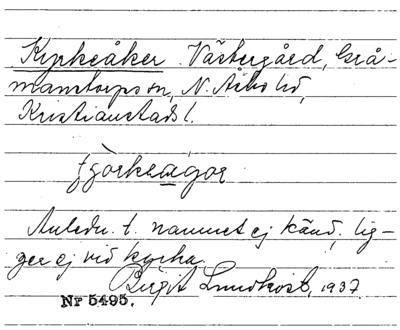 Kyrkeåker Västergård, Grå-
manstorps sn, N. Åsbo hd,
Kristianstads l.
fjörkeagor
Anledn. t. namnet ej känd, lig-
ger ej vid kyrka.
Birgit Lundkvist, 1937
Nr 5495.